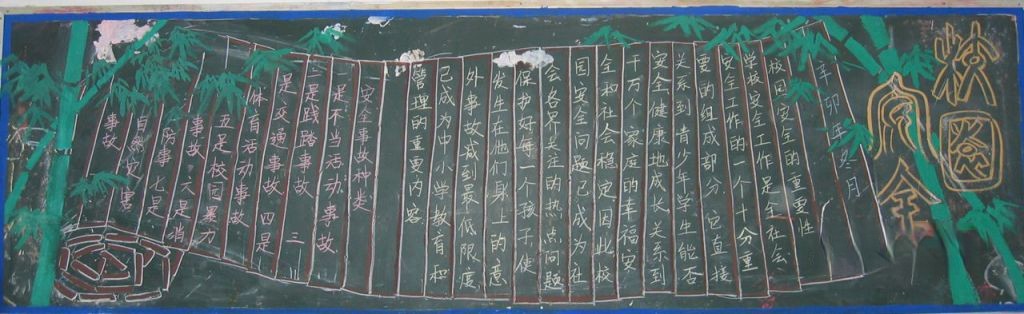 校园安全
辛卯年冬月
校园安全的重要性
学校安全工作是全社会
安全工作的一个十分重
要的组成部分。它直接
关系到青少年学生能否
安全健康地成长,关系到
千万个家庭的幸福安
全和社会稳定因此校
园安全问题已成为社
会各界关注的热点问题
保护好每一个孩子,使
发生在他们身上的意
外事故减到最低限度
已成为中小学教育和
管理的重要内容
安全事故种类
一是不当活动事故
二是践踏事故 三
是交通事故 四是
体育活动事故
五是校园暴力
事故 六是消
防事 七是
自然灾害
事故